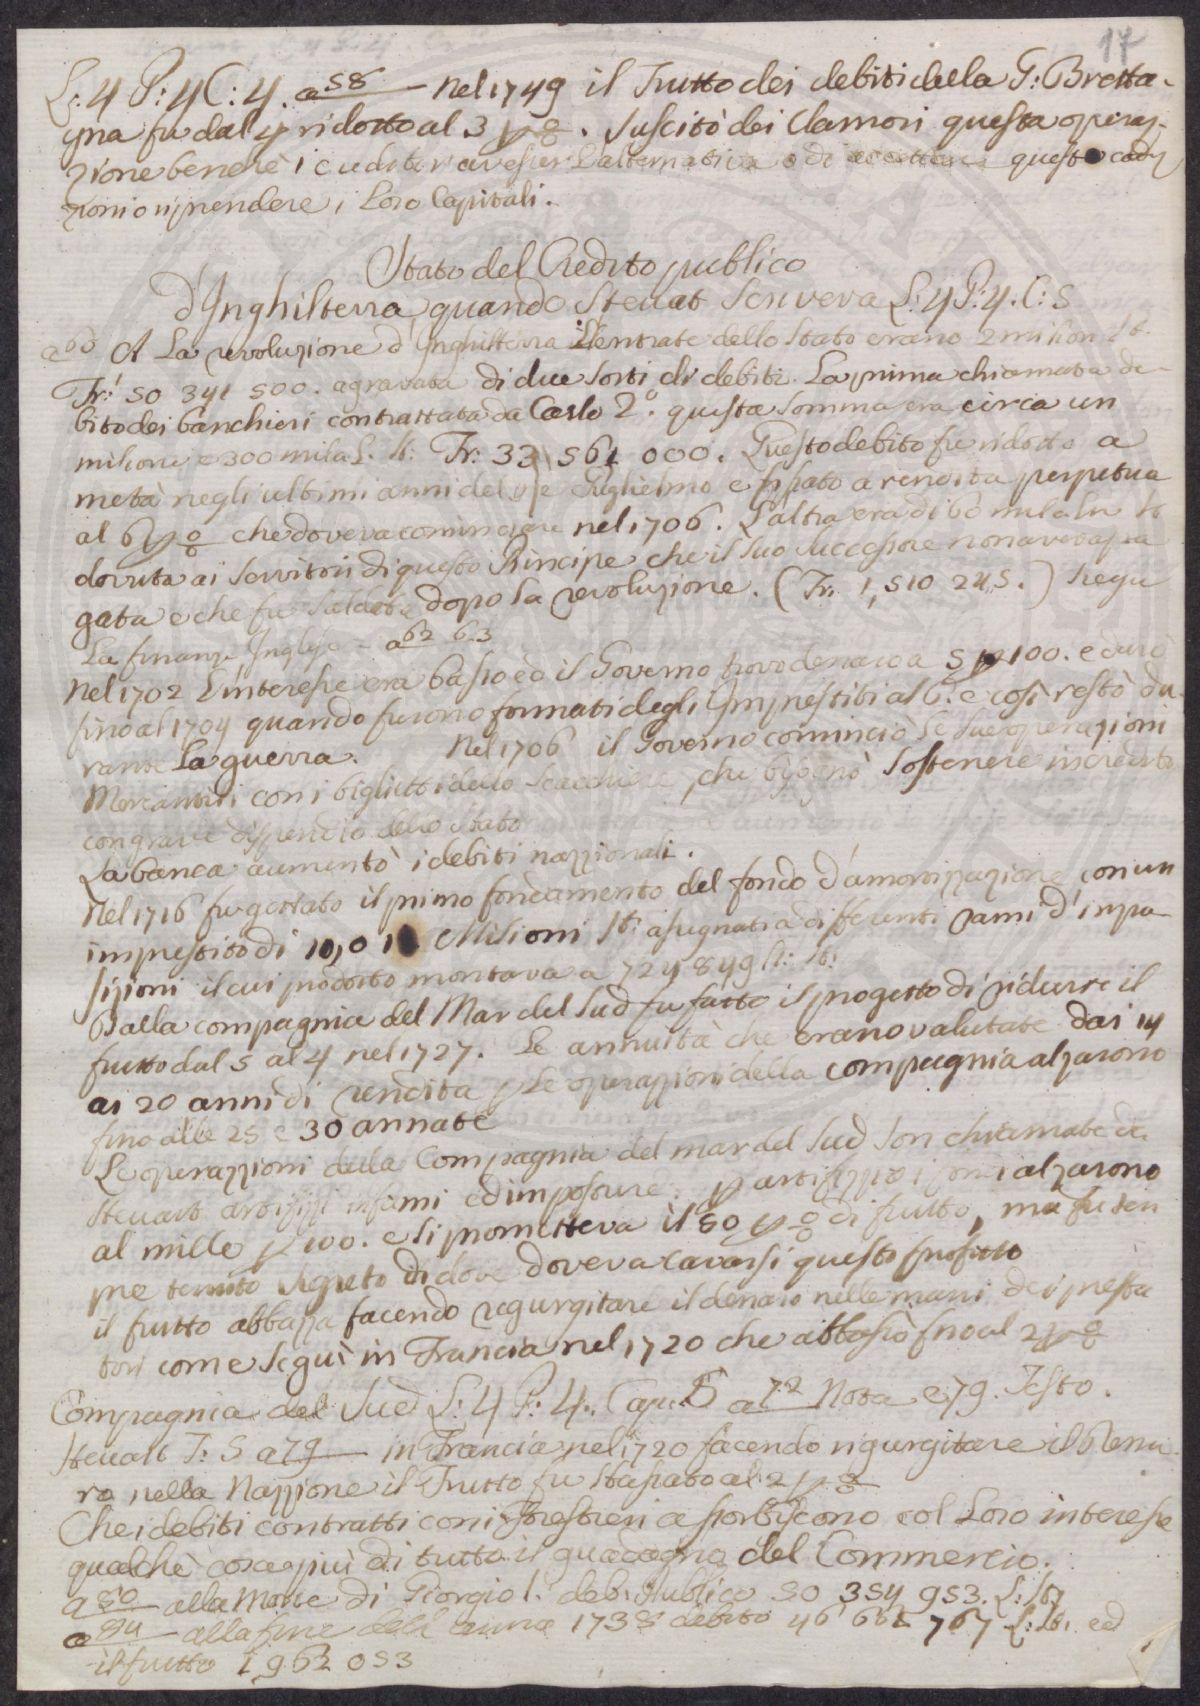 17
L: 4 P: 4 C: 4. a 58 - Nel 1749 il Frutto dei debiti della G: Bretta-
gna fu dal 4 ridotto al 3 p % . Suscitò dei Clamori questa operaz-
zione benche i creditori avesser l'alternativa o di accettare queste condi
zioni o riprendere i Loro Capitali.
Stato del Credito publico
d'Inghilterra quando Steuart Scriveva L: 4 P: 4. C: 5
a 60 A La revoluzione d'Inghilterra L'entrate dello Stato erano 2 milioni St.
Fr: 50 341 500. agravata di due sorti di debiti. La prima chiamata de-
bito dei banchieri contrattata da Carlo 2°. questa somma era circa un
milione e 300 mila L. St: Fr: 33 561 000. Questo debito fu ridotto a
metà negli ultimi anni del Re Guglielmo e fissato a rendita perpetua
al 6 p % che doveva cominciare nel 1706. L'altra era di 60 mila Lir St
dovuta ai Servitori di questo Principe che il suo successore non aveva pa
gata e che fu saldata dopo la revoluzione. (Fr. 1,510 245.) Segu
La finanze Inglese - a 62 63
Nel 1702 L'interesse era basso ed il Governo trovò denaro a 5 p 100. e durò
fino al 1704 quando furono formati degli Imprestiti al 6. e così restò du-
rante La guerra. Nel 1706 il Governo cominciò le sue operazioni
Mercantili con i biglietti dello Scacchiere, che bisognò sostenere in credito
con grave dispendio dello Stato
La banca aumentò i debiti nazzionali.
Nel 1716 fu gettato il primo fondamento del fondo d'amortizzazione con un
imprestito di 10,0 Milioni St: assegnati a differenti rami d'impo-
sizioni il cui prodotto montava a 724 849 L: St:
Dalla compagnia del Mar del Sud fu fatto il progetto di ridurre il
frutto dal 5 al 4 nel 1727. Le annuità che erano valutate dai 14
ai 20 anni di rendita p Le operazioni della compagnia alzarono
fino alle 25 e 30 annate
Le operazzioni della Compagnia del mar del Sud son chiamate da
Steuart artifizzi infami ed imposture. p artifizzio i fondi alzarono
al mille p 100. e si prometteva il 50 p % di frutto, ma fu sem
pre tenuto segreto di dove doveva cavarsi questo profitto
il frutto abbassa facendo regurgitare il denaro nelle mani dei presta
tori come seguì in Francia nel 1720 che abbassò fino al 2 p %
Compagnia del Sud L: 4 P: 4. Cap. 5 a 72 Nota e 79. Testo.
Steuart T: 5 a 79 in Francia nel 1720 facendo rigurgitare il Denu
ro nella Nazzione il Frutto fu stassato al 2 p %
Che i debiti contratti con i forestieri assorbiscono col Loro interesse
qualche cosa più di tutto il guadagno del Commercio.
a 80 alla Morte di Giorgio I. deb: Publico 50 354 953. L: St
a 84 alla fine dell' anno 1738 debito 46 661 767 L: St: ed
il frutto 1 962 053